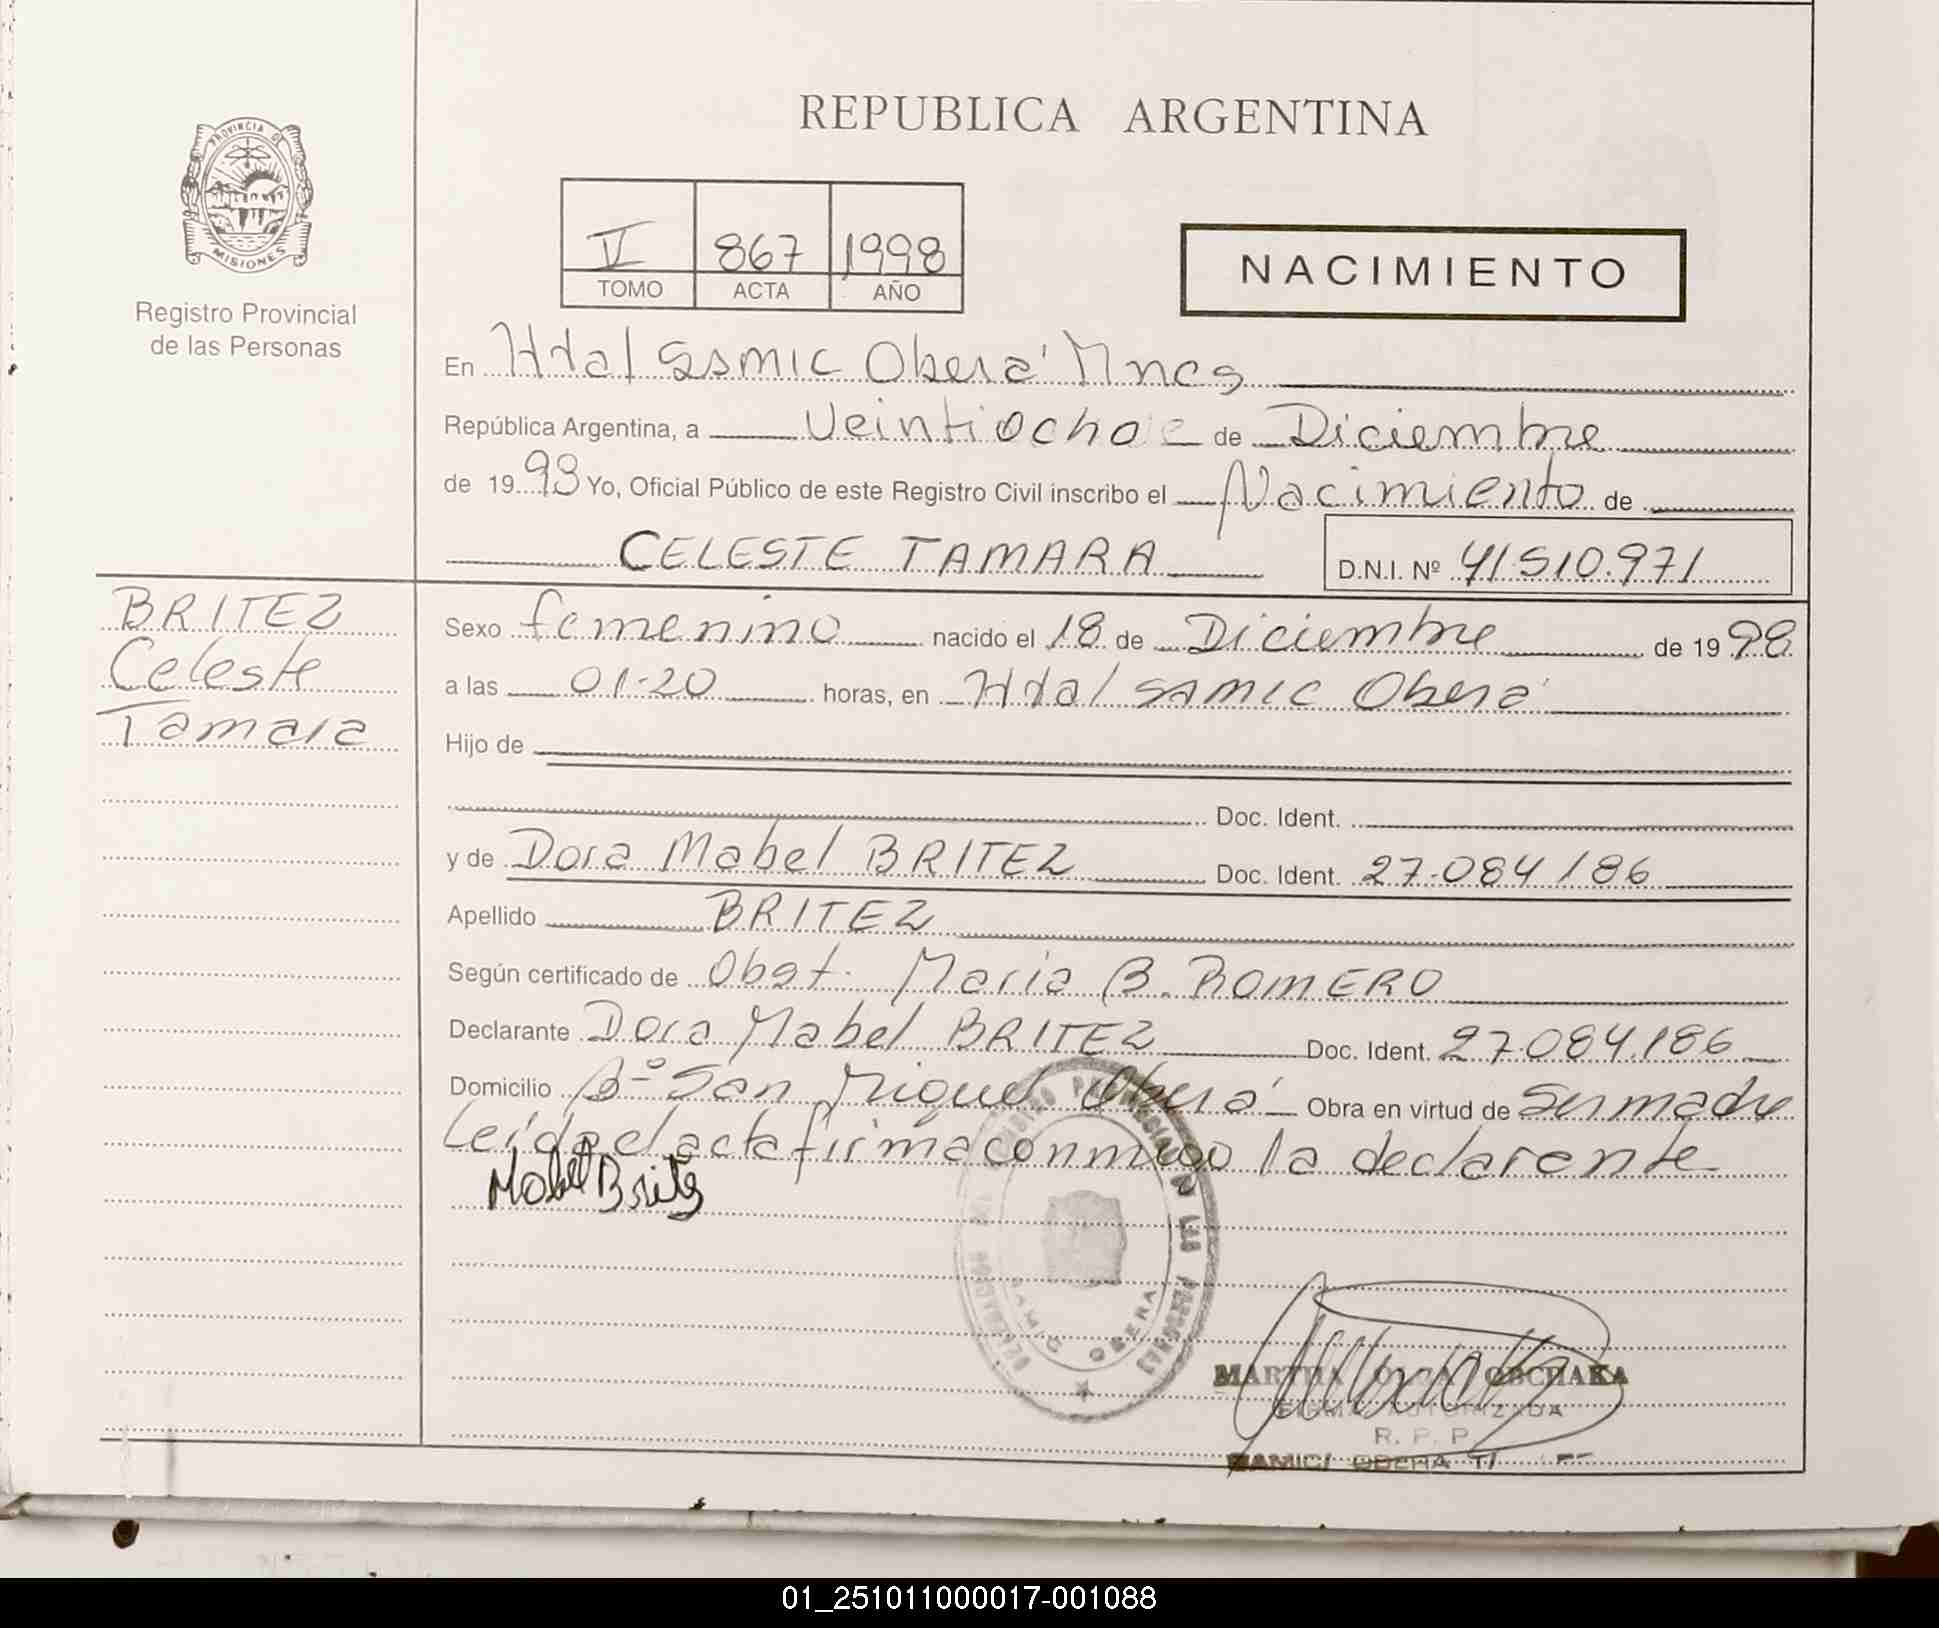 REPUBLICA ARGENTINA
PROVINCIA DE
MISIONES
Registro Provincial
de las Personas
V 867 1998
TOMO ACTA AÑO
NACIMIENTO
En Htal Samic Oberá Mnes
República Argentina, a Veintiocho de Diciembre
de 1998 Yo, Oficial Público de este Registro Civil inscribo el Nacimiento de
CELESTE TAMARA D.N.I. Nº 41.510.971
BRITEZ
Celeste
Tamara
Sexo femenino nacido el 18 de Diciembre de 1998
a las 01.20 horas, en Htal SAMIC Oberá
Hijo de
Doc. Ident.
y de Dora Mabel BRITEZ Doc. Ident. 27.084.186
Apellido BRITEZ
Según certificado de Obst. Maria B. ROMERO
Declarante Dora Mabel BRITEZ Doc. Ident. 27.084.186
Domicilio Bº San Miguel Oberá Obra en virtud de Ser madre
Leída el acta firma conmigo la declarante
Mabel Britez
PROVINCIAL DE LAS PERSONAS
SAMIC OBERA
MARTHA OLGA OBCHAKA
FIRMA AUTORIZADA
R. P. P
SAMIC/ OBERA
01_251011000017-001088